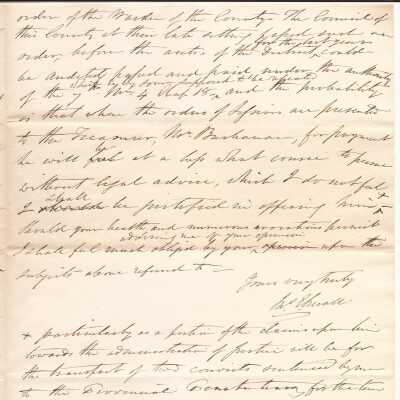 order of the Warden of the County. The Council of
this County at their late sitting passed such an
order, before the auth of the District, could
for the last year
be audited, passed and paid under the authority
of the 4 & 5 Vic 4 Chap 18, and the probability
is that when the orders of Session are presented
to the Treasurer, Mr Buchanan, for payment
he will feel at a loss what course to pursue
without legal advice, which I do not feel +
I shall be justified in offering him
Should your health and numerous avocations permit
I shall feel much obliged by your, upon the
advising me of your opinion
subjects above referred to
Yours very truly
+ particularly as a portion of the claims upon him
towards the administration of justice will be for
the transport of two convicts sentenced by me
to the Provincial Penitentiary, for the term